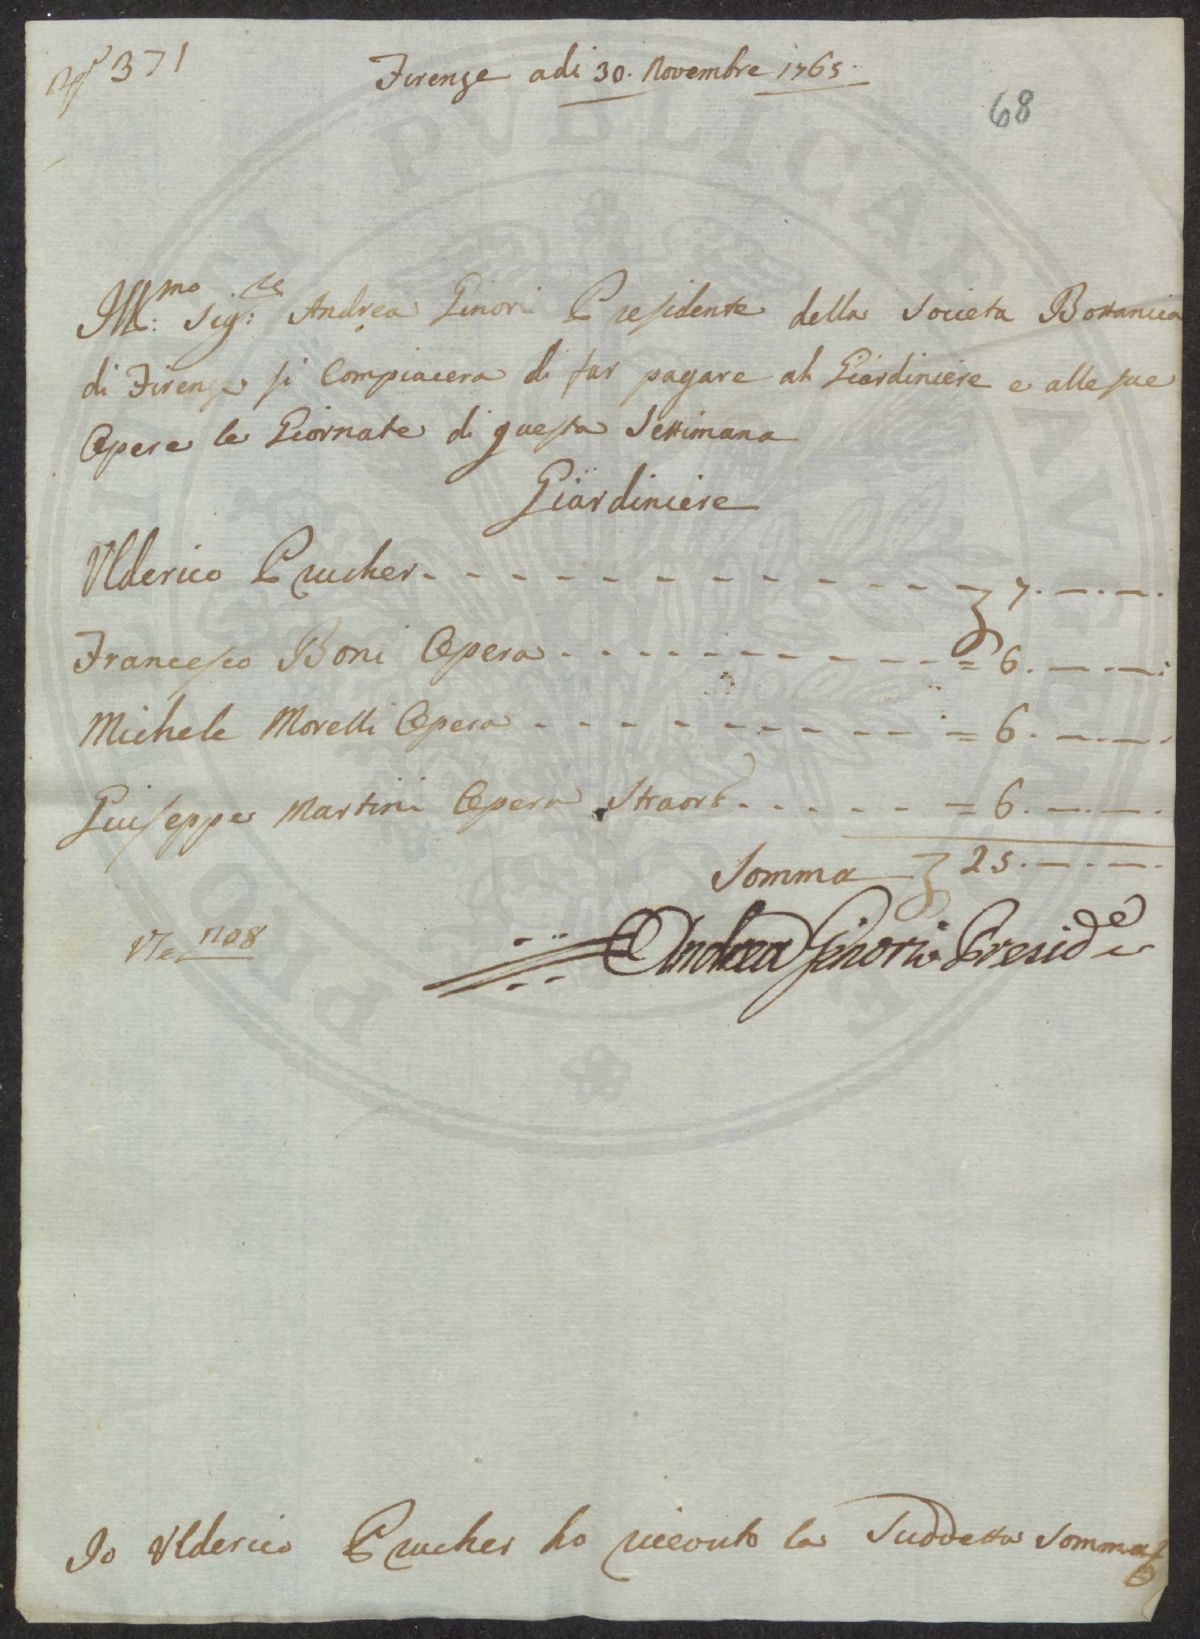 N.º 371
Firenze adi 30. Novembre 1765.
68
Ill.mo Sig.re Andrea Ginori Presidente della Società Bottanica
di Firenze si Compiacera di far pagare al Giardiniere e alle sue
Opere le Giornate di questa Settimana
Giardiniere
Ulderico Prucher - - - - - - - - - - - - - - 7. —.—.
Francesco Boni Opera - - - - - - - - - - - = 6. —.—.
Michele Morelli Opera - - - - - - - - - - = 6. —.—.
Giuseppe Martini Opera Straord - - - - - = 6. —.—.
Somma 25. —.—.
Andrea Ginori Presid.e
Io Ulderico Prucher ho riceuto la Suddetta Somma
PVBLICAE